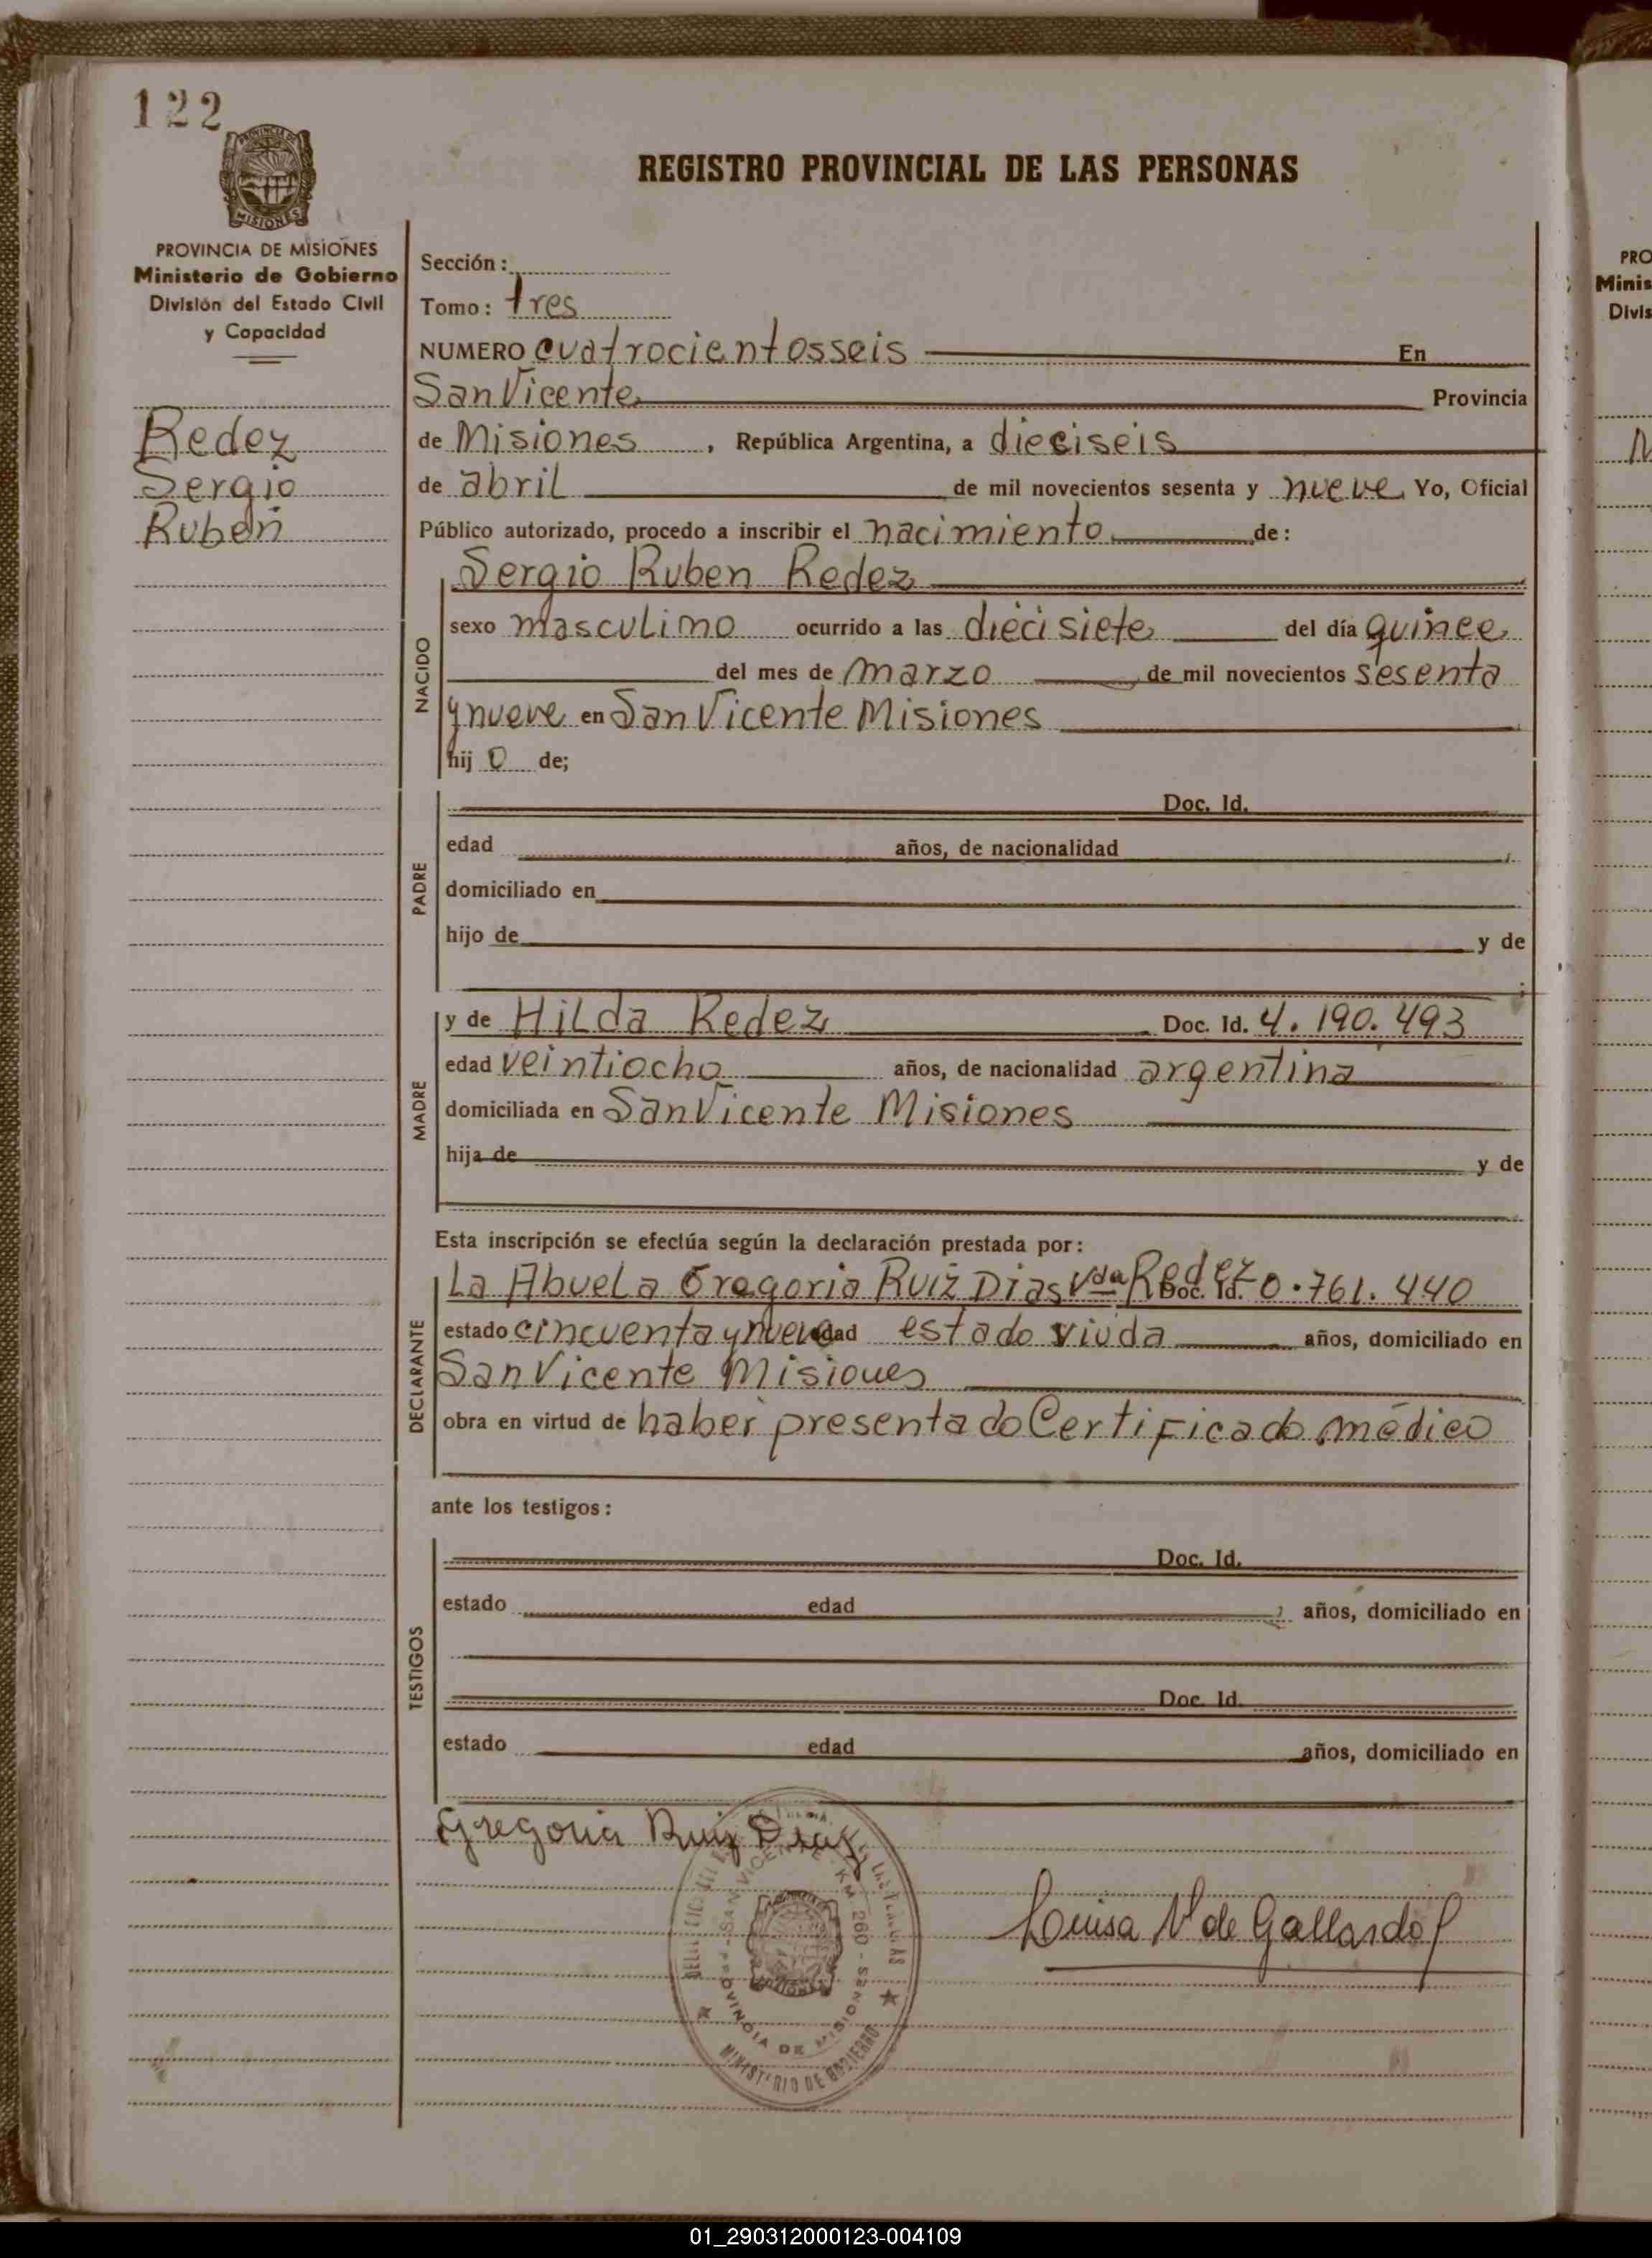 122
PROVINCIA DE
MISIONES
PROVINCIA DE MISIONES
Ministerio de Gobierno
División del Estado Civil
y Capacidad
Redez
Sergio
Ruben
REGISTRO PROVINCIAL DE LAS PERSONAS
Sección:
Tomo: tres
NUMERO cuatrocientosseis En
San Vicente Provincia
de Misiones, República Argentina, a dieciseis
de abril de mil novecientos sesenta y nueve Yo, Oficial
Público autorizado, procedo a inscribir el nacimiento de:
NACIDO
Sergio Ruben Redez
sexo masculino ocurrido a las diecisiete del día quince
del mes de marzo de mil novecientos sesenta
y nueve en San Vicente Misiones
hij o de;
PADRE
Doc. Id.
edad años, de nacionalidad
domiciliado en
hijo de y de
MADRE
y de Hilda Redez Doc. Id. 4.190.493
edad veintiocho años, de nacionalidad argentina
domiciliada en San Vicente Misiones
hija de y de
Esta inscripción se efectúa según la declaración prestada por:
DECLARANTE
La Abuela Gregoria Ruiz Dias Vda Redez Doc. Id. 0.761.440
estado cincuenta y nueve edad estado viuda años, domiciliado en
San Vicente Misiones
obra en virtud de haber presentado Certificado médico
ante los testigos:
TESTIGOS
Doc. Id.
estado edad años, domiciliado en
Doc. Id.
estado edad años, domiciliado en
Gregoria Ruiz Diaz
SAN VICENTE - KM 260 - PROVINCIA DE MISIONES
MINISTERIO DE GOBIERNO
Luisa V de Gallardo
PRO
Minis
Divis
01_290312000123-004109